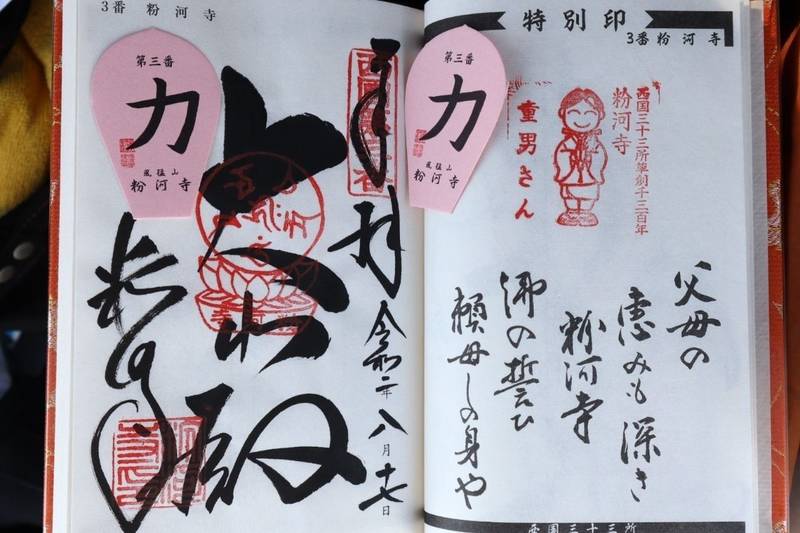 特別印
3番 粉河寺
西国三十三所草創千三百年
粉河寺
童男さん
父母の
恵みも深き
粉河寺
佛の誓ひ
頼母しの身や
西国三十三所
3番 粉河寺
第三番
力
風猛山
粉河寺
第三番
力
風猛山
粉河寺
奉拝
令和二年八月十七日
大悲殿
粉河寺